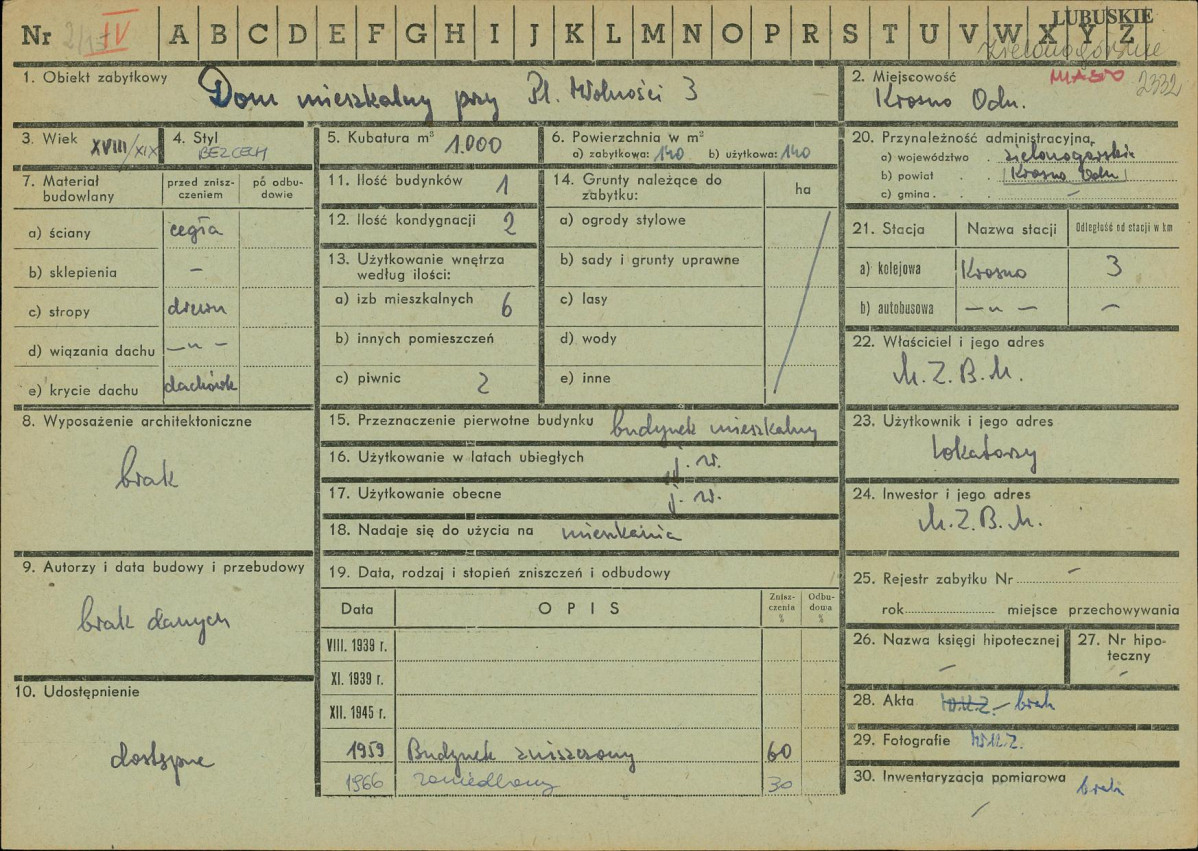 Nr IV A B C D E F G H I J K L M N O P R S T U V W X Y Z LUBUSKIE
Zielonogórskie
MIASTO 2332
1. Obiekt zabytkowy Dom mieszkalny przy Pl. Wolności 3
2. Miejscowość
Krosno Odn.
3. Wiek XVIII/XIX
4. Styl
BEZ CECH
5. Kubatura m³ 1.000
6. Powierzchnia w m²
a) zabytkowa: 140 b) użytkowa: 140
7. Materiał budowlany
przed zniszczeniem
po odbudowie
a) ściany cegła
b) sklepienia –
c) stropy drewn
d) wiązania dachu —„—
e) krycie dachu dachówk
8. Wyposażenie architektoniczne
brak
9. Autorzy i data budowy i przebudowy
brak danych
10. Udostępnienie
dostępne
11. Ilość budynków 1
12. Ilość kondygnacji 2
13. Użytkowanie wnętrza
według ilości:
a) izb mieszkalnych 6
b) innych pomieszczeń
c) piwnic 2
14. Grunty należące do
zabytku:
ha
a) ogrody stylowe
b) sady i grunty uprawne
c) lasy
d) wody
e) inne
15. Przeznaczenie pierwotne budynku budynek mieszkalny
16. Użytkowanie w latach ubiegłych j. w.
17. Użytkowanie obecne j. w.
18. Nadaje się do użycia na mieszkania
19. Data, rodzaj i stopień zniszczeń i odbudowy
Data OPIS Zniszczenia % Odbudowa %
VIII. 1939 r.
XI. 1939 r.
XII. 1945 r.
1959 Budynek zniszczony 60
1966 zaniedbany 30
20. Przynależność administracyjna
a) województwo . zielonogórskie
b) powiat . . Krosno Odn
c) gmina . . . –
21. Stacja Nazwa stacji Odległość od stacji w km
a) kolejowa Krosno 3
b) autobusowa —„— –
22. Właściciel i jego adres
M.Z.B.M.
23. Użytkownik i jego adres
lokatorzy
24. Inwestor i jego adres
M.Z.B.M.
25. Rejestr zabytku Nr –
rok miejsce przechowywania
26. Nazwa księgi hipotecznej
–
27. Nr hipoteczny
–
28. Akta W.K.Z. – brak
29. Fotografie W.K.Z.
30. Inwentaryzacja pomiarowa brak